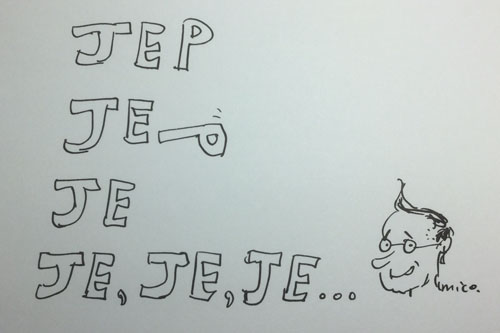 JEP
JEP
JE
JE, JE, JE...
mico.